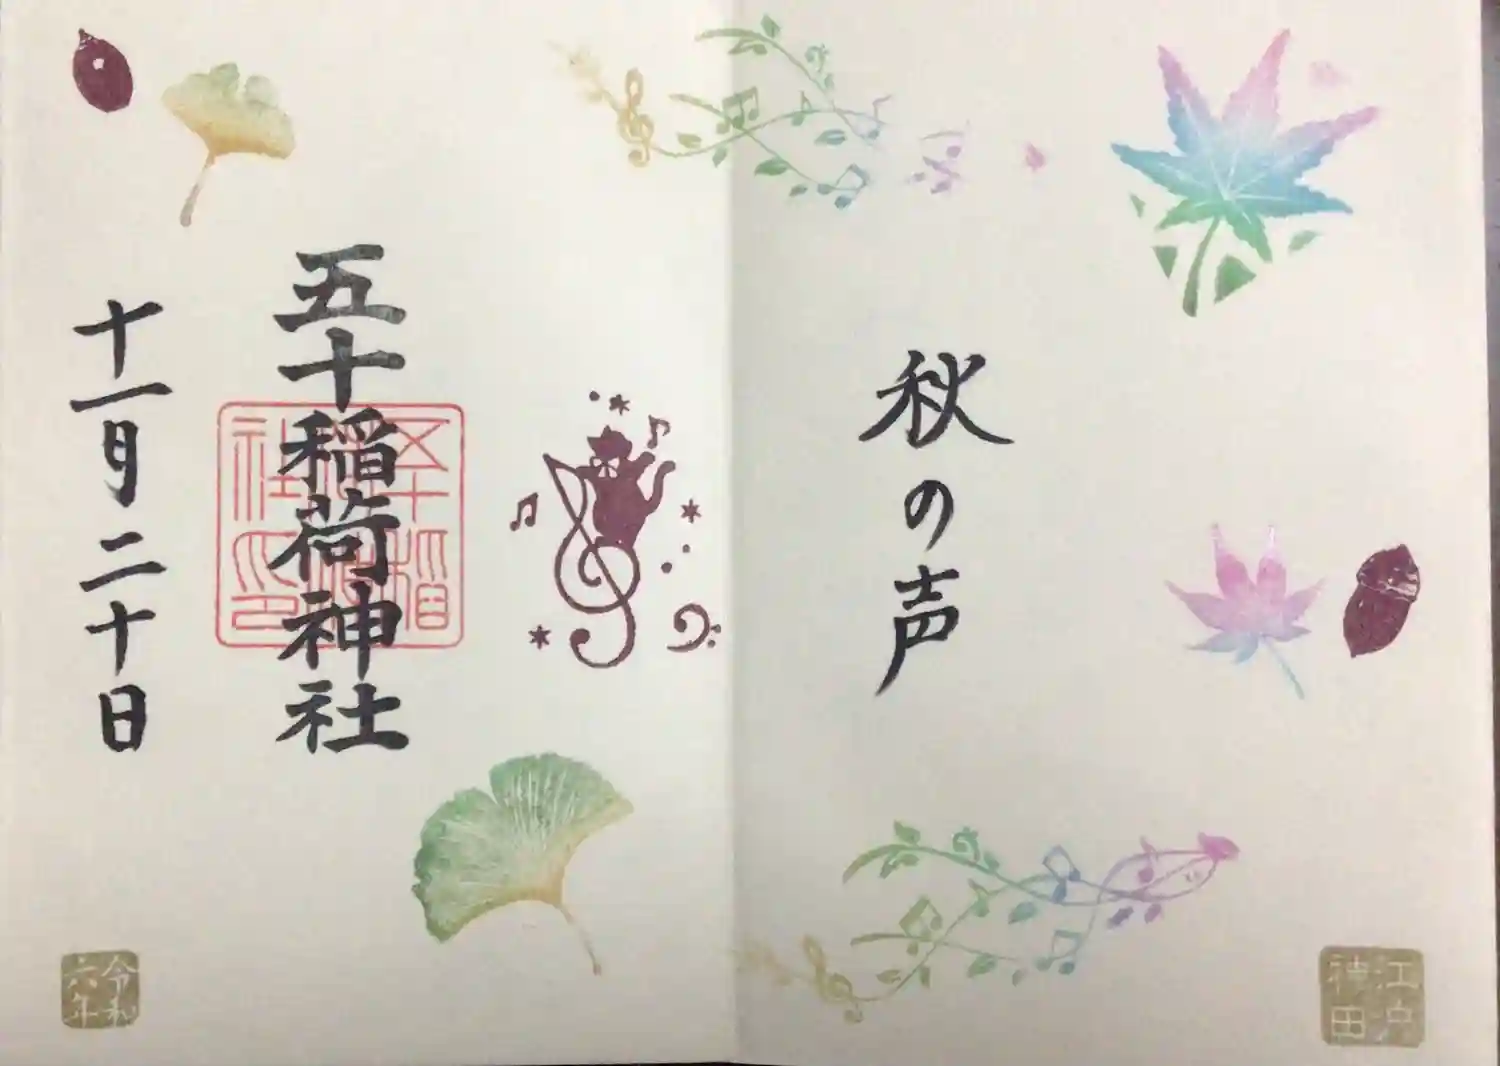 秋の声
江戸
神田
五十稲荷神社
五十稲
荷神
社印
十一月二十日
令和
六年